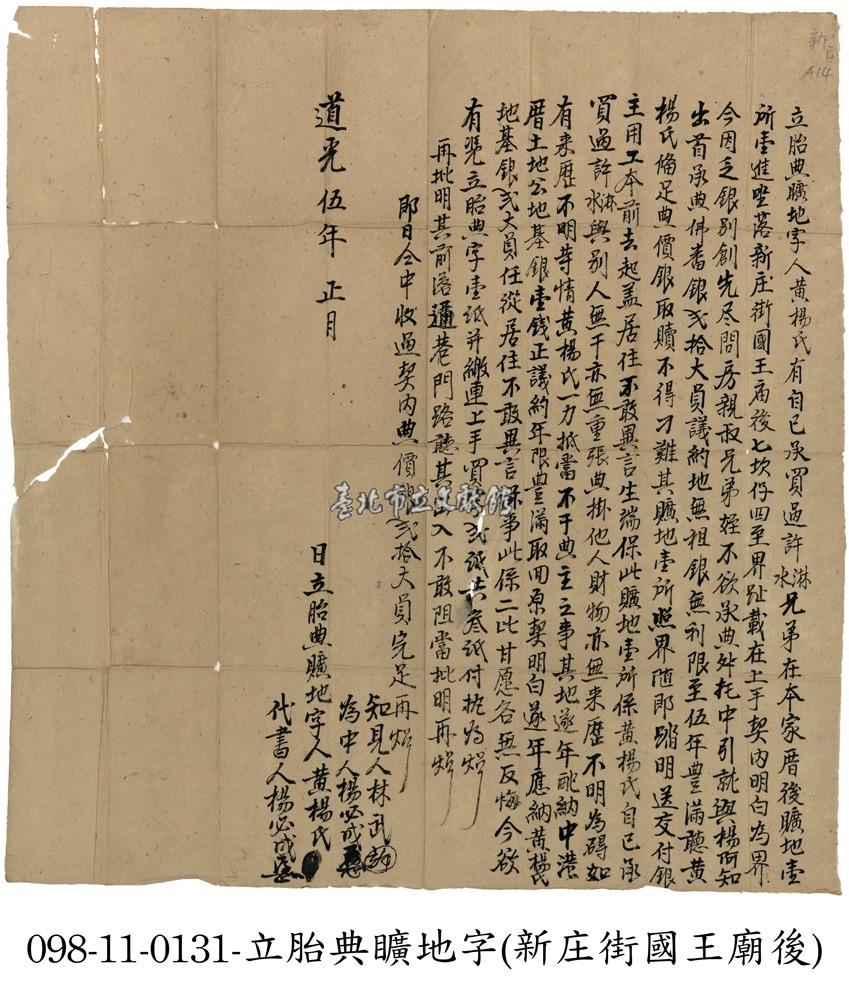 新庄
A14
立胎典曠地字人黃楊氏有自己承買過許淋水兄弟在本家厝後曠地壹
所壹進坐落新庄街國王庙後七坎仔四至界趾載在上手契內明白為界
今因乏銀別創先尽問房親叔兄弟姪不欲承典外托中引就與楊阿知
出首承典佛番銀弍拾大員議約地無租銀無利限至伍年豊滿聽黃
楊氏俻足典價銀取贖不得刁難其曠地壹所照界随即踏明送交付銀
主用工本前去起盖居住不敢異言生端保此曠地壹所係黃楊氏自己承
買過許淋水與別人無干亦無重張典掛他人財物亦無来歷不明為碍如
有来歷不明等情黃楊氏一力抵當不干典主之事其地遞年配納中港
厝土地公地基銀壹錢正議約年限豊滿取回原契明白遞年應納黃楊氏
地基銀弍大員任從居住不敢異言保事此係二比甘愿各無反悔今欲
有凭立胎典字壹紙并繳連上手買契弍紙共叁紙付执為炤
再批明其前落通巷門路聽其出入不敢阻當批明再炤
即日仝中收過契內典價銀弍拾大員完足再炤
知見人林武
為中人楊必成
道光伍年正月 日立胎典曠地字人黃楊氏
代書人楊必成
臺北市立文獻館
098-11-0131-立胎典曠地字(新庄街國王廟後)